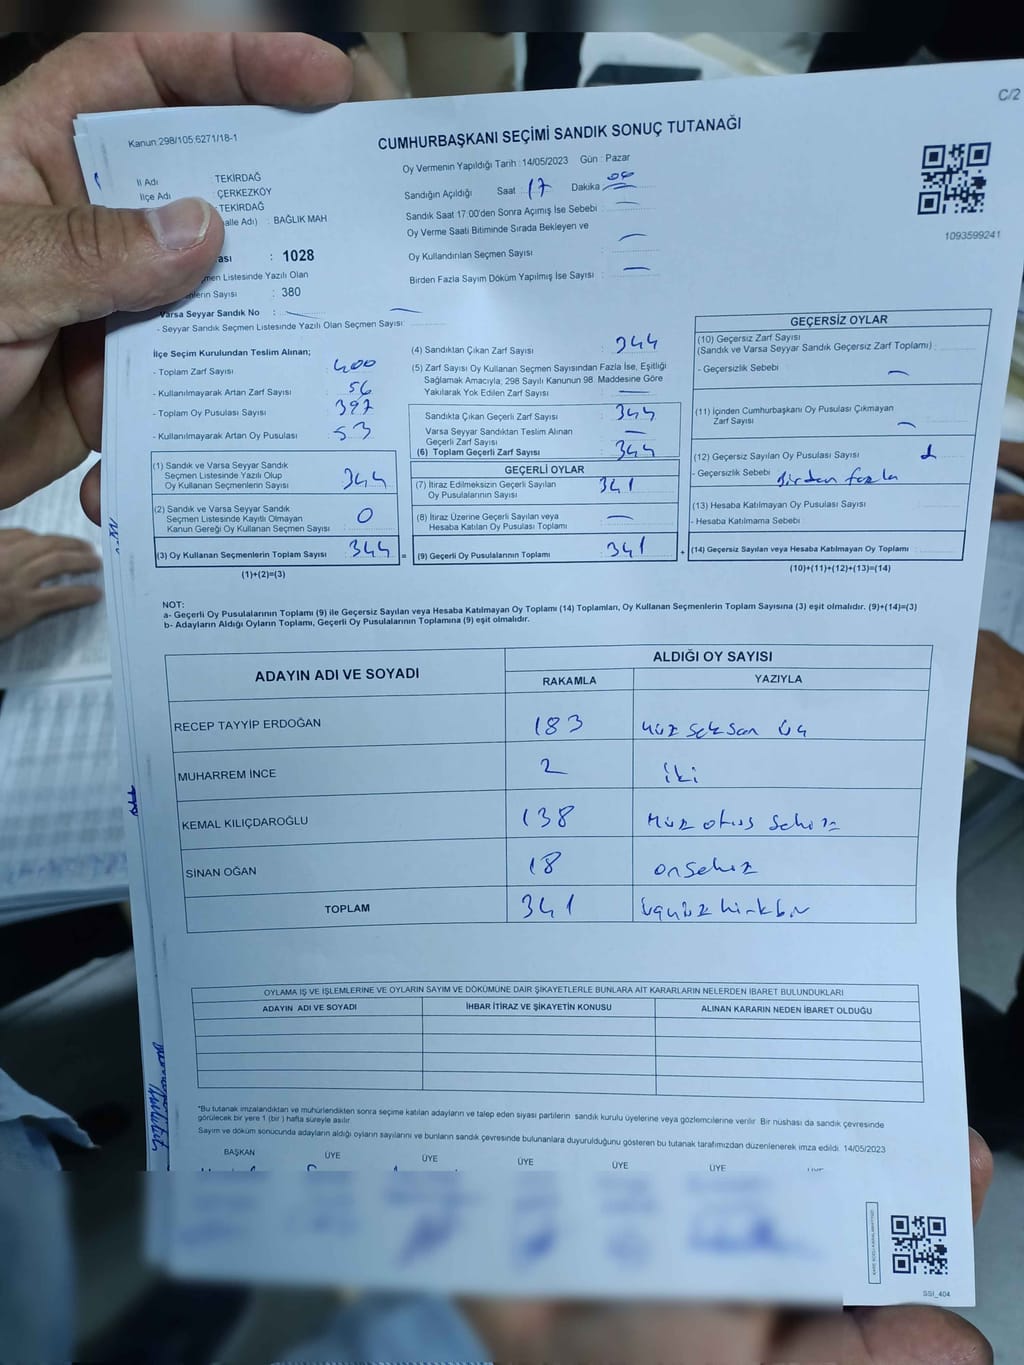 C/2
Kanun:298/105;6271/18-1
CUMHURBAŞKANI SEÇİMİ SANDIK SONUÇ TUTANAĞI
İl Adı : TEKİRDAĞ
İlçe Adı : ÇERKEZKÖY
TEKİRDAĞ
alle Adı) : BAĞLIK MAH
ası : 1028
men Listesinde Yazılı Olan
nlerin Sayısı : 380
Varsa Seyyar Sandık No :
- Seyyar Sandık Seçmen Listesinde Yazılı Olan Seçmen Sayısı:
Oy Vermenin Yapıldığı Tarih : 14/05/2023 Gün : Pazar
Sandığın Açıldığı Saat : 17 Dakika 00
Sandık Saat 17:00'den Sonra Açımış İse Sebebi :
Oy Verme Saati Bitiminde Sırada Bekleyen ve
Oy Kullandırılan Seçmen Sayısı :
Birden Fazla Sayım Döküm Yapılmış İse Sayısı :
1093599241
İlçe Seçim Kurulundan Teslim Alınan;
- Toplam Zarf Sayısı : 400
- Kullanılmayarak Artan Zarf Sayısı : 56
- Toplam Oy Pusulası Sayısı : 397
- Kullanılmayarak Artan Oy Pusulası : 53
(1) Sandık ve Varsa Seyyar Sandık
Seçmen Listesinde Yazılı Olup
Oy Kullanan Seçmenlerin Sayısı : 344
(2) Sandık ve Varsa Seyyar Sandık
Seçmen Listesinde Kayıtlı Olmayan
Kanun Gereği Oy Kullanan Seçmen Sayısı : 0
(3) Oy Kullanan Seçmenlerin Toplam Sayısı : 344 =
(1)+(2)=(3)
(4) Sandıktan Çıkan Zarf Sayısı : 344
(5) Zarf Sayısı Oy Kullanan Seçmen Sayısından Fazla İse, Eşitliği
Sağlamak Amacıyla; 298 Sayılı Kanunun 98. Maddesine Göre
Yakılarak Yok Edilen Zarf Sayısı :
Sandıkta Çıkan Geçerli Zarf Sayısı : 344
Varsa Seyyar Sandıktan Teslim Alınan
Geçerli Zarf Sayısı :
(6) Toplam Geçerli Zarf Sayısı : 344
GEÇERLİ OYLAR
(7) İtiraz Edilmeksizin Geçerli Sayılan
Oy Pusulalarının Sayısı : 341
(8) İtiraz Üzerine Geçerli Sayılan veya
Hesaba Katılan Oy Pusulası Toplamı :
(9) Geçerli Oy Pusulalarının Toplamı : 341 +
GEÇERSİZ OYLAR
(10) Geçersiz Zarf Sayısı
(Sandık ve Varsa Seyyar Sandık Geçersiz Zarf Toplamı) :
- Geçersizlik Sebebi :
(11) İçinden Cumhurbaşkanı Oy Pusulası Çıkmayan
Zarf Sayısı :
(12) Geçersiz Sayılan Oy Pusulası Sayısı :
- Geçersizlik Sebebi : Birden fazla
(13) Hesaba Katılmayan Oy Pusulası Sayısı :
- Hesaba Katılmama Sebebi :
(14) Geçersiz Sayılan veya Hesaba Katılmayan Oy Toplamı :
(10)+(11)+(12)+(13)=(14)
NOT:
a- Geçerli Oy Pusulalarının Toplamı (9) ile Geçersiz Sayılan veya Hesaba Katılmayan Oy Toplamı (14) Toplamları, Oy Kullanan Seçmenlerin Toplam Sayısına (3) eşit olmalıdır. (9)+(14)=(3)
b- Adayların Aldığı Oyların Toplamı, Geçerli Oy Pusulalarının Toplamına (9) eşit olmalıdır.
ADAYIN ADI VE SOYADI ALDIĞI OY SAYISI
RAKAMLA YAZIYLA
RECEP TAYYİP ERDOĞAN 183 yüz seksan üç
MUHARREM İNCE 2 iki
KEMAL KILIÇDAROĞLU 138 yüz otuz sekiz
SİNAN OĞAN 18 onsekiz
TOPLAM 341 üçyüz kırkbir
OYLAMA İŞ VE İŞLEMLERİNE VE OYLARIN SAYIM VE DÖKÜMÜNE DAİR ŞİKAYETLERLE BUNLARA AİT KARARLARIN NELERDEN İBARET BULUNDUKLARI
ADAYIN ADI VE SOYADI İHBAR İTİRAZ VE ŞİKAYETİN KONUSU ALINAN KARARIN NEDEN İBARET OLDUĞU
*Bu tutanak imzalandıktan ve mühürlendikten sonra seçime katılan adayların ve talep eden siyasi partilerin sandık kurulu üyelerine veya gözlemcilerine verilir. Bir nüshası da sandık çevresinde
görülecek bir yere 1 (bir) hafta süreyle asılır.
Sayım ve döküm sonucunda adayların aldığı oyların sayılarını ve bunların sandık çevresinde bulunanlara duyurulduğunu gösteren bu tutanak tarafımızdan düzenlenerek imza edildi. 14/05/2023
BAŞKAN ÜYE ÜYE ÜYE ÜYE ÜYE
SSİ_404